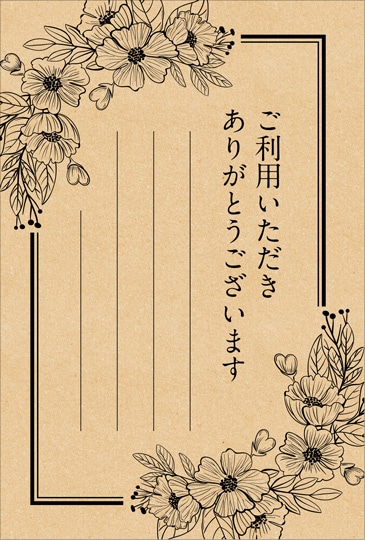 ご利用いただき
ありがとうございます